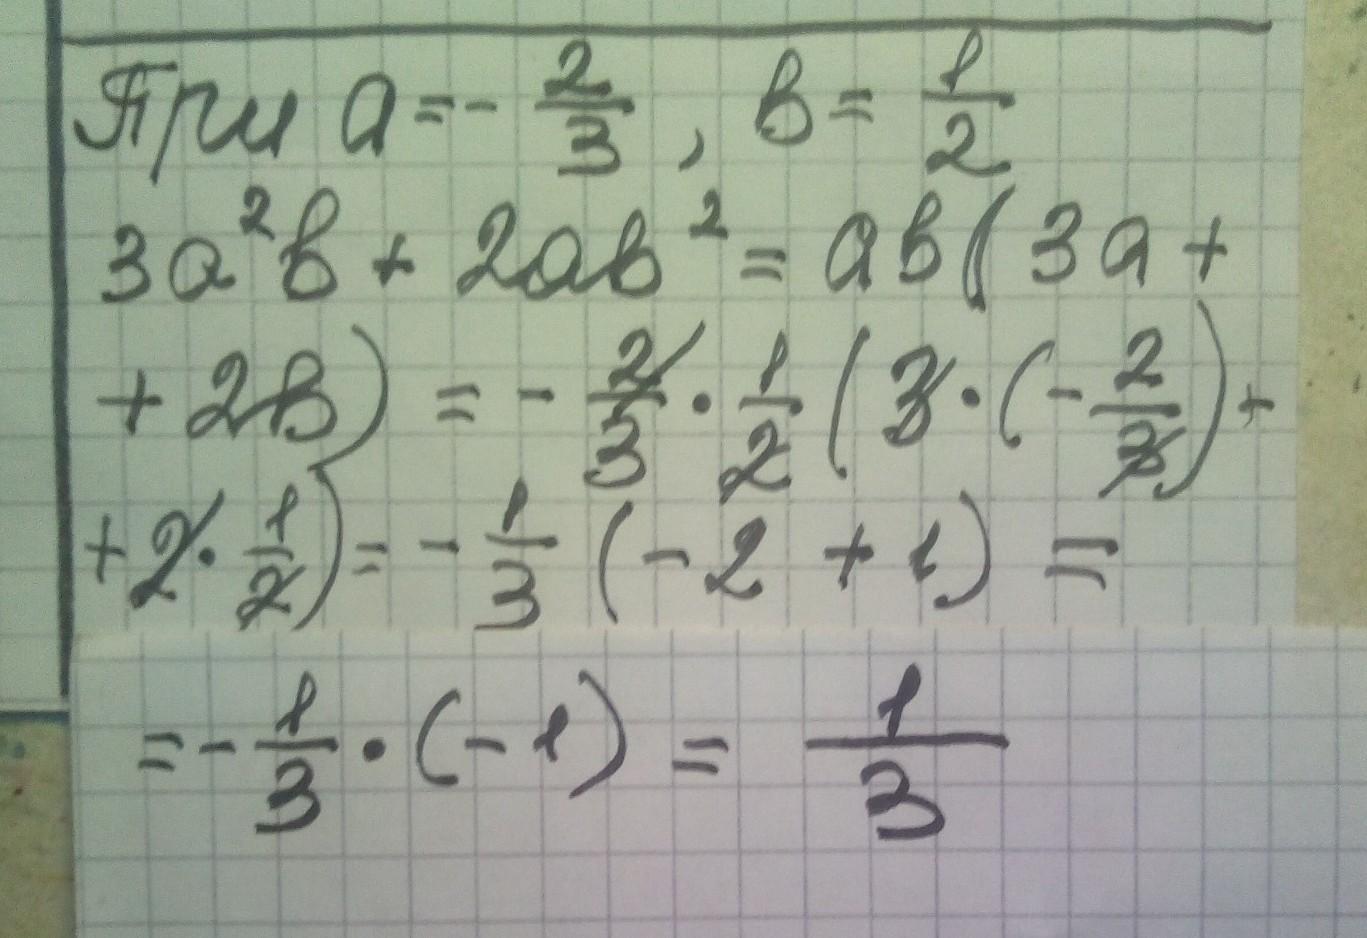 При a = - 2/3, в = 1/2
3a²в + 2aв² = aв(3a +
+ 2в) = - 2/3 · 1/2 (3 · (- 2/3) +
+ 2 · 1/2) = - 1/3 (- 2 + 1) =
= - 1/3 · (- 1) = 1/3